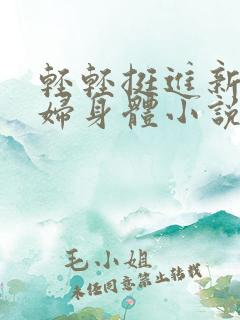 轻轻挺進新
婦身體小説
毛小姐
未经同意禁止转载